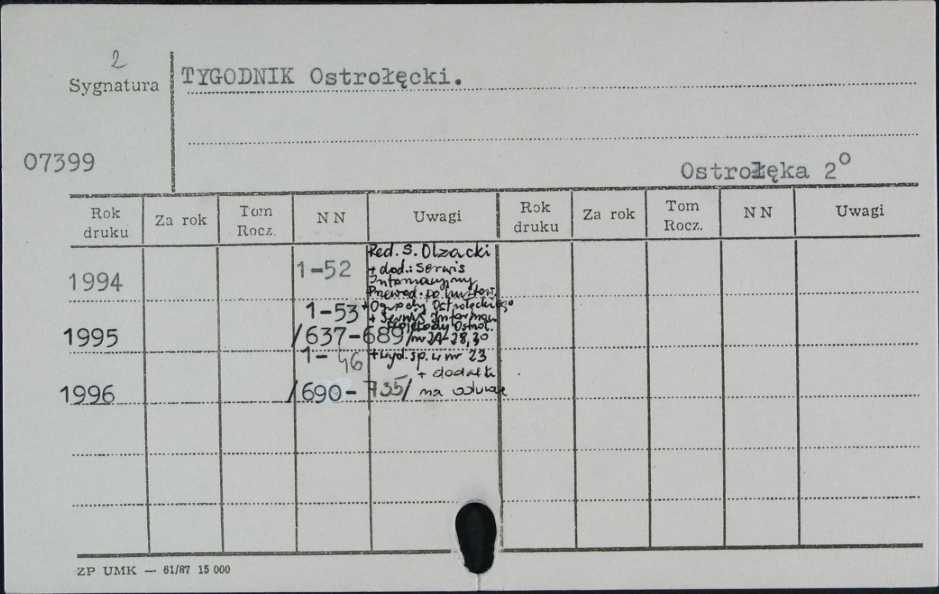 2
Sygnatura
TYGODNIK Ostrołęcki.
07399
Ostrołęka 2°
Rok druku Za rok Tom Rocz. NN Uwagi Rok druku Za rok Tom Rocz. NN Uwagi
Red. S. Olzacki
1994 1-52 + dod.: Serwis
Informacyjny
1-53 + Ostrołęckiego
+ Serwis Informac
Ostroł.
1995 /637-689/ nr 2A-28,30
1-46 + wyd. sp. 4 nr 23
+ dodatk
1996 /690-735/ na
ZP UMK — 61/87 15 000